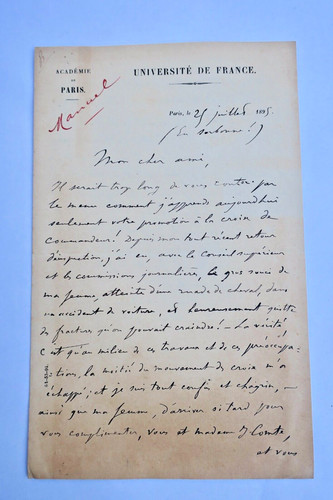 ACADÉMIE
DE
PARIS.
UNIVERSITÉ DE FRANCE.
Manuel
Paris, le 25 juillet 1895.
(En Sorbonne !)
Mon cher ami,
Il serait trop long de vous conter par
le menu comment j'apprends aujourd'hui
seulement votre promotion à la croix de
Commandeur ! Depuis mon tout récent retour
d'inspection, j'ai eu, avec le Conseil supérieur
et les commissions journalières, le gros souci de
ma femme, atteinte d'une ruade de cheval, dans
un accident de voiture, et heureusement quitte
de fracture qu'on pouvait craindre ! — La vérité,
c'est qu'au milieu de ces travaux et de ces préoccupa-
tions, la moitié du mouvement de croix m'a
échappé, et je suis tout confus et chagrin, —
ainsi que ma femme, d'arriver si tard pour
vous complimenter, vous et madame
et vous